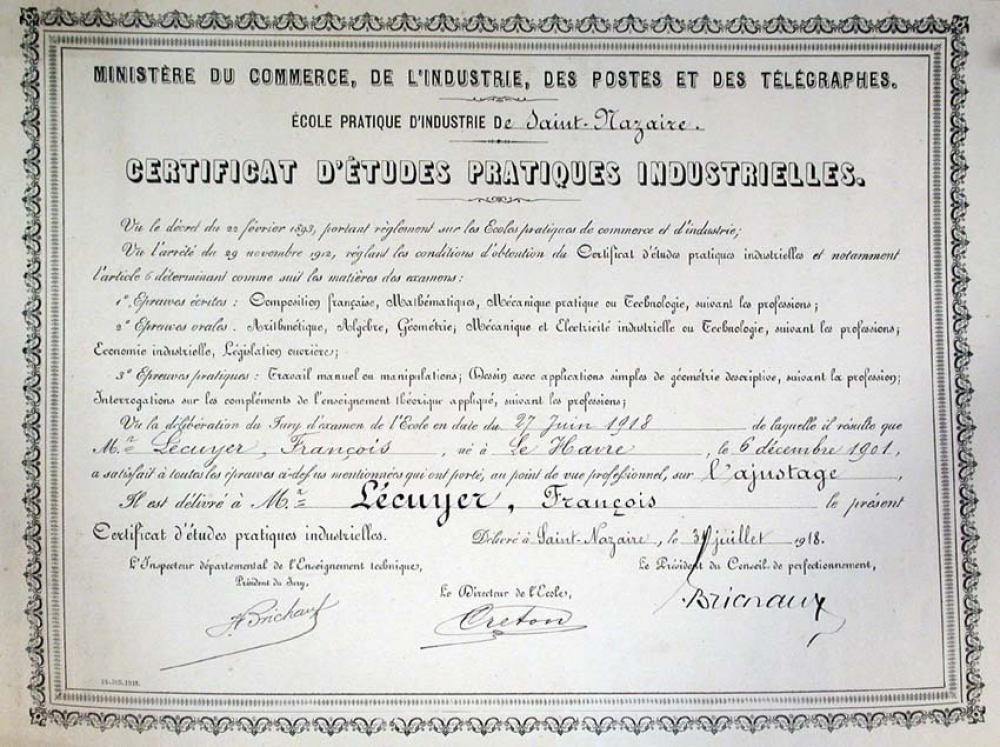 MINISTÈRE DU COMMERCE, DE L'INDUSTRIE, DES POSTES ET DES TÉLÉGRAPHES.
ÉCOLE PRATIQUE D'INDUSTRIE De Saint-Nazaire.
CERTIFICAT D'ÉTUDES PRATIQUES INDUSTRIELLES.
Vu le décret du 22 février 1893, portant règlement sur les Ecoles pratiques de commerce et d'industrie;
Vu l'arrêté du 29 novembre 1912, réglant les conditions d'obtention du Certificat d'études pratiques industrielles et notamment
l'article 6 déterminant comme suit les matières des examens :
1° Epreuves écrites : Composition française, Mathématiques, Mécanique pratique ou Technologie, suivant les professions;
2° Epreuves orales. Arithmétique, Algèbre, Géométrie; Mécanique et Electricité industrielle ou Technologie, suivant les professions;
Economie industrielle, Législation ouvrière;
3° Epreuves pratiques : Travail manuel ou manipulations; Dessin avec applications simples de géométrie descriptive, suivant la profession;
Interrogations sur les compléments de l'enseignement théorique appliqué, suivant les professions;
Vu la délibération du Jury d'examen de l'Ecole en date du 27 Juin 1918 de laquelle il résulte que
M.r Lécuyer, François, né à Le Havre, le 6 décembre 1901,
a satisfait à toutes les épreuves ci-dessus mentionnées qui ont porté, au point de vue professionnel, sur l'ajustage,
Il est délivré à M.r Lécuyer, François le présent
Certificat d'études pratiques industrielles. Délivré à Saint-Nazaire, le 31 juillet 1918.
L'Inspecteur départemental de l'Enseignement technique, Le Président du Conseil de perfectionnement,
Président du Jury,
Le Directeur de l'Ecole,
Creton